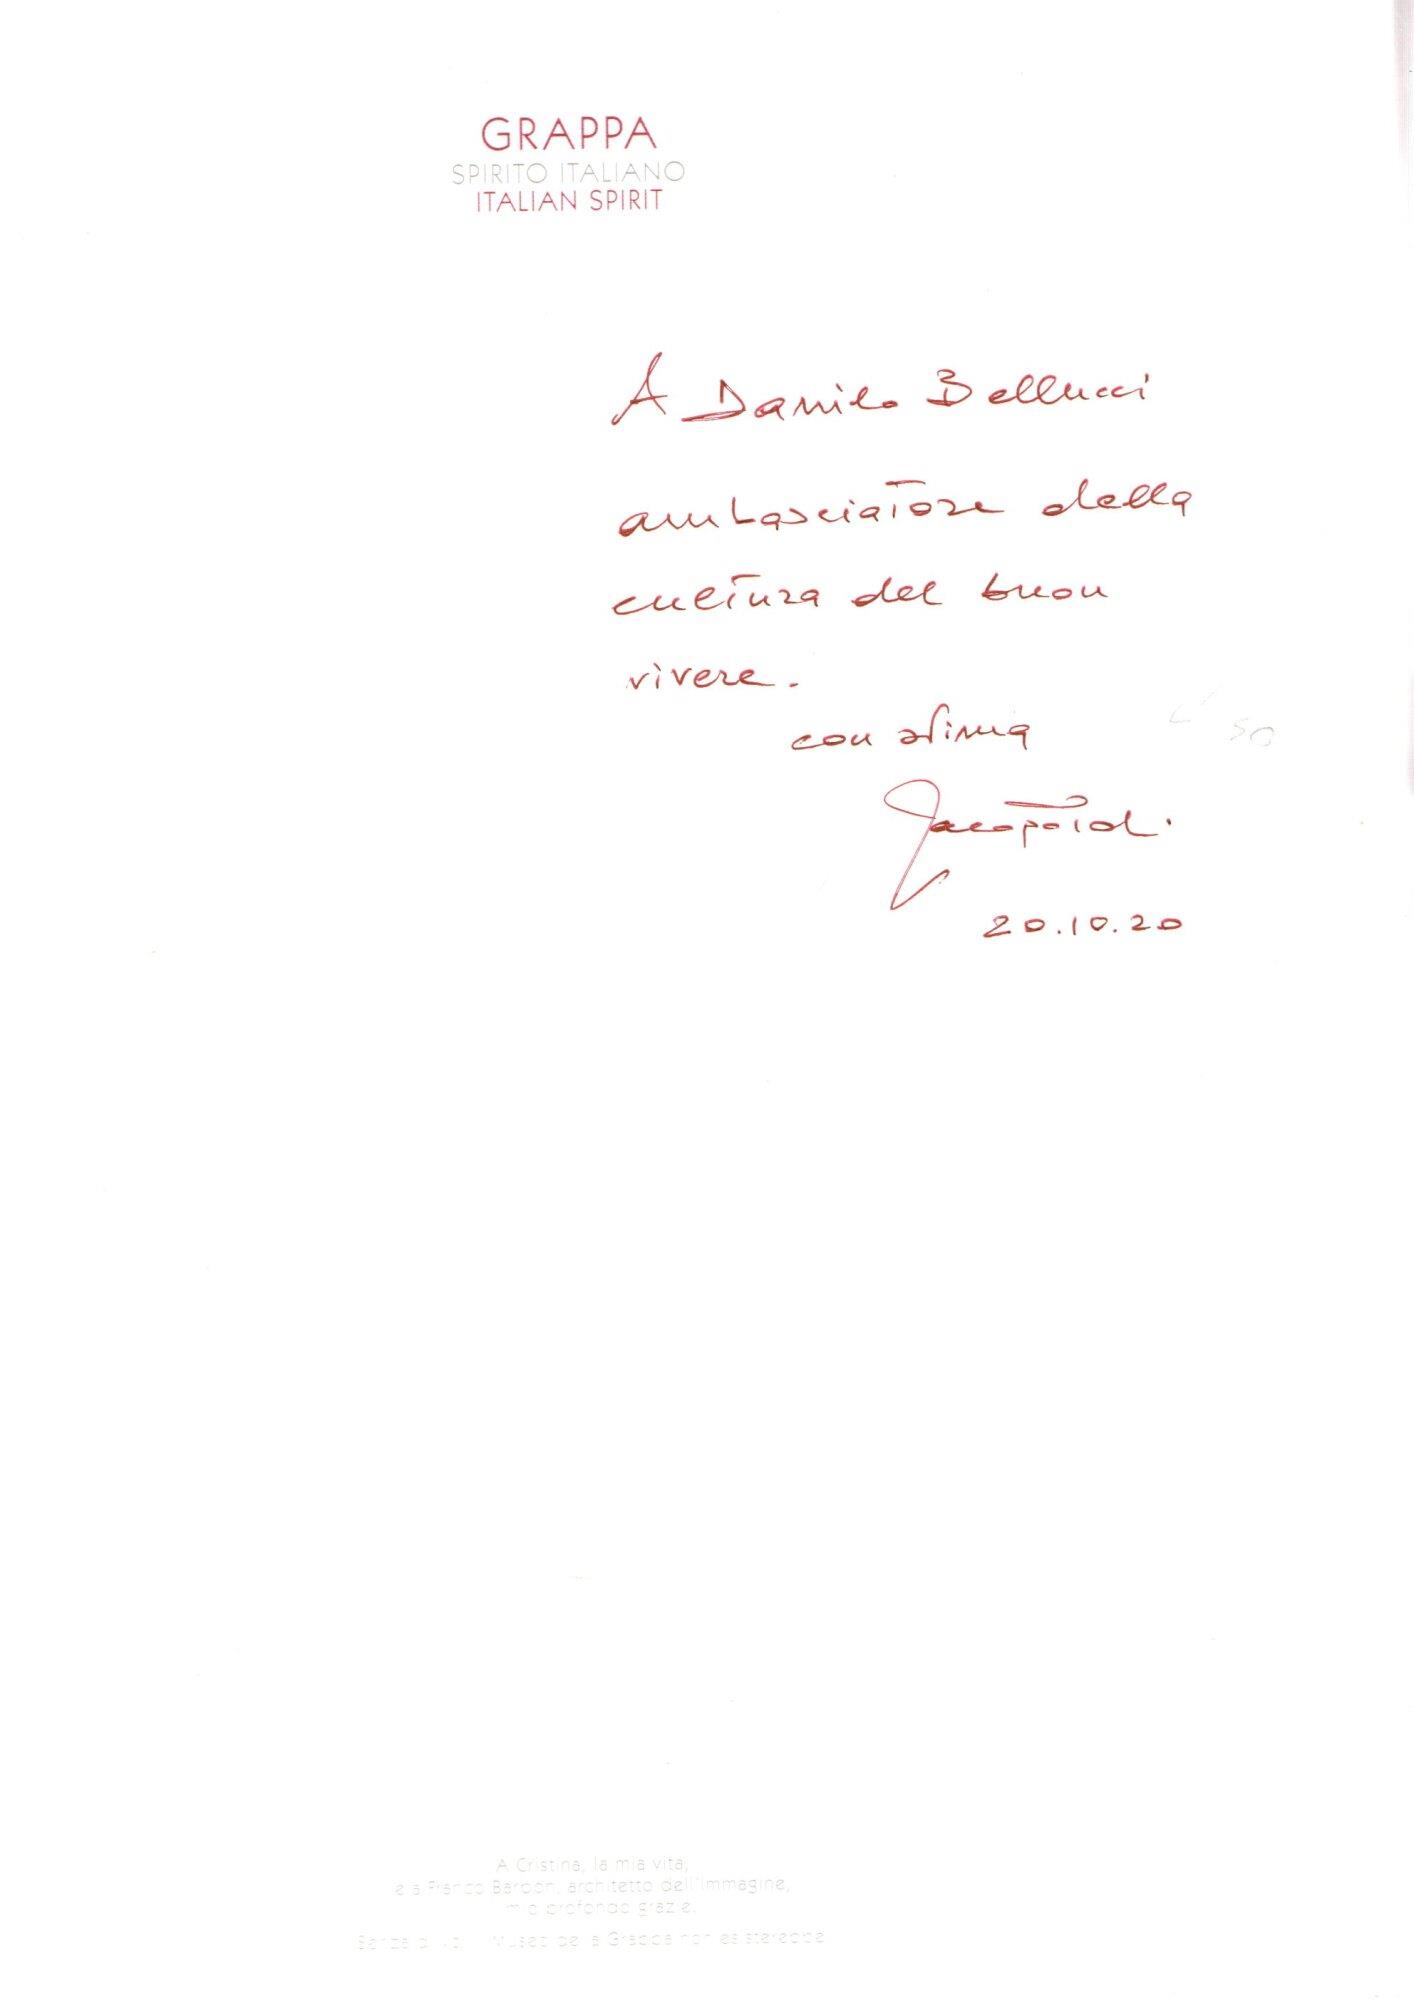 GRAPPA
SPIRITO ITALIANO
ITALIAN SPIRIT
A Danilo Bellucci
ambasciatore della
cultura del buon
vivere.
con stima
20.10.20
50
A Cristina, la mia vita,
e a Franco Bardon, architetto dell'Immagine,
mio profondo grazie.
Senza di voi il Museo della Grappa non esisterebbe